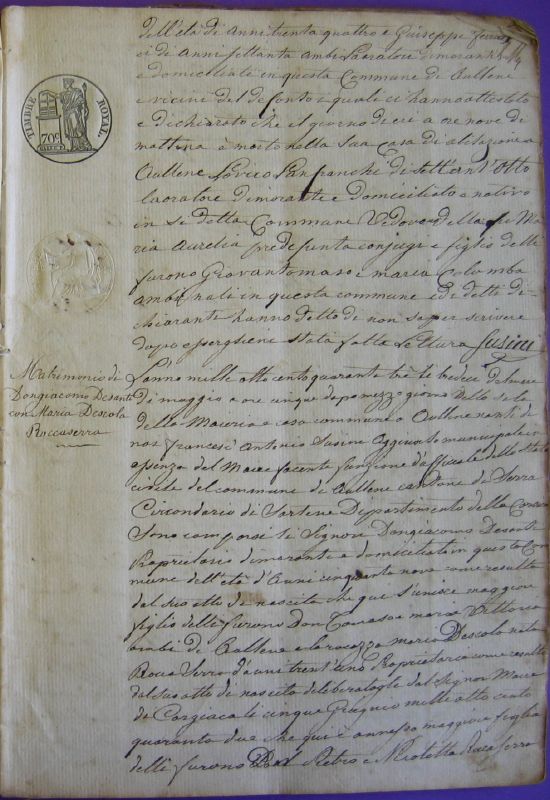 dell'età di Anni trenta quattro e Guiseppe
ci di Anni settanta Ambi Lavoratori dimoranti
e domiciliati in questa Commune di Aullene
e vicini del defonto i quali ci hanno attestato
e dichiarato che il giorno di eri a ore nove di
mattina è morto nella sua casa di abitazione a
Aullene Lanfranchi di settant'otto
lavoratore dimorante e domiciliato e nativo
in se detta Commune Vedovo della fu Ma
ria Aurelia predefunta conjugi e figlio delli
furono Giovantomaso e Maria Colomba
ambi nati in questa commune ed i detti di-
chiaranti hanno detto di non saper scrivere
dopo essergliene stata fatta lettura Susini
TIMBRE ROYAL
70c
Matrimonio di
Dongiacomo Desanti
con Maria Descola
Roccaserra
L'anno mille otto cento quaranta tre le tredeci del mese
di maggio a ore cinque dopo mezzo giorno della sala
della Maeria e casa communa d'Aullene nanti di
noi Francesc' Antonio Susini Aggiunto municipale in
assenza del Maere facente funzione d'officiale dello stato
civile del comune di Aullene cantone di Serra
Circondario di Sartene Dipartimento della Corsica
Sono comparsi li Signori Dongiacomo Desanti
Proprietario dimorante e domiciliato in questa Com
mune dell'età d'Anni cinquanta nove come resulta
dal suo atto di nascita che qui s'unisce maggiore
figlio delli furono Don Tomaso e Maria Vittoria
ambi di Aullene e la ragazza Maria Descola nata
Rocca Serra d'anni trent'uno Proprietaria come resulta
dal suo atto di nascita deliberatogli dal Signor Maere
di Cargiaca li cinque Giugnio mille otto cento
quaranta due che qui è annesso maggiore figlia
delli furono Pietro e Nicoletta Rocca Serra